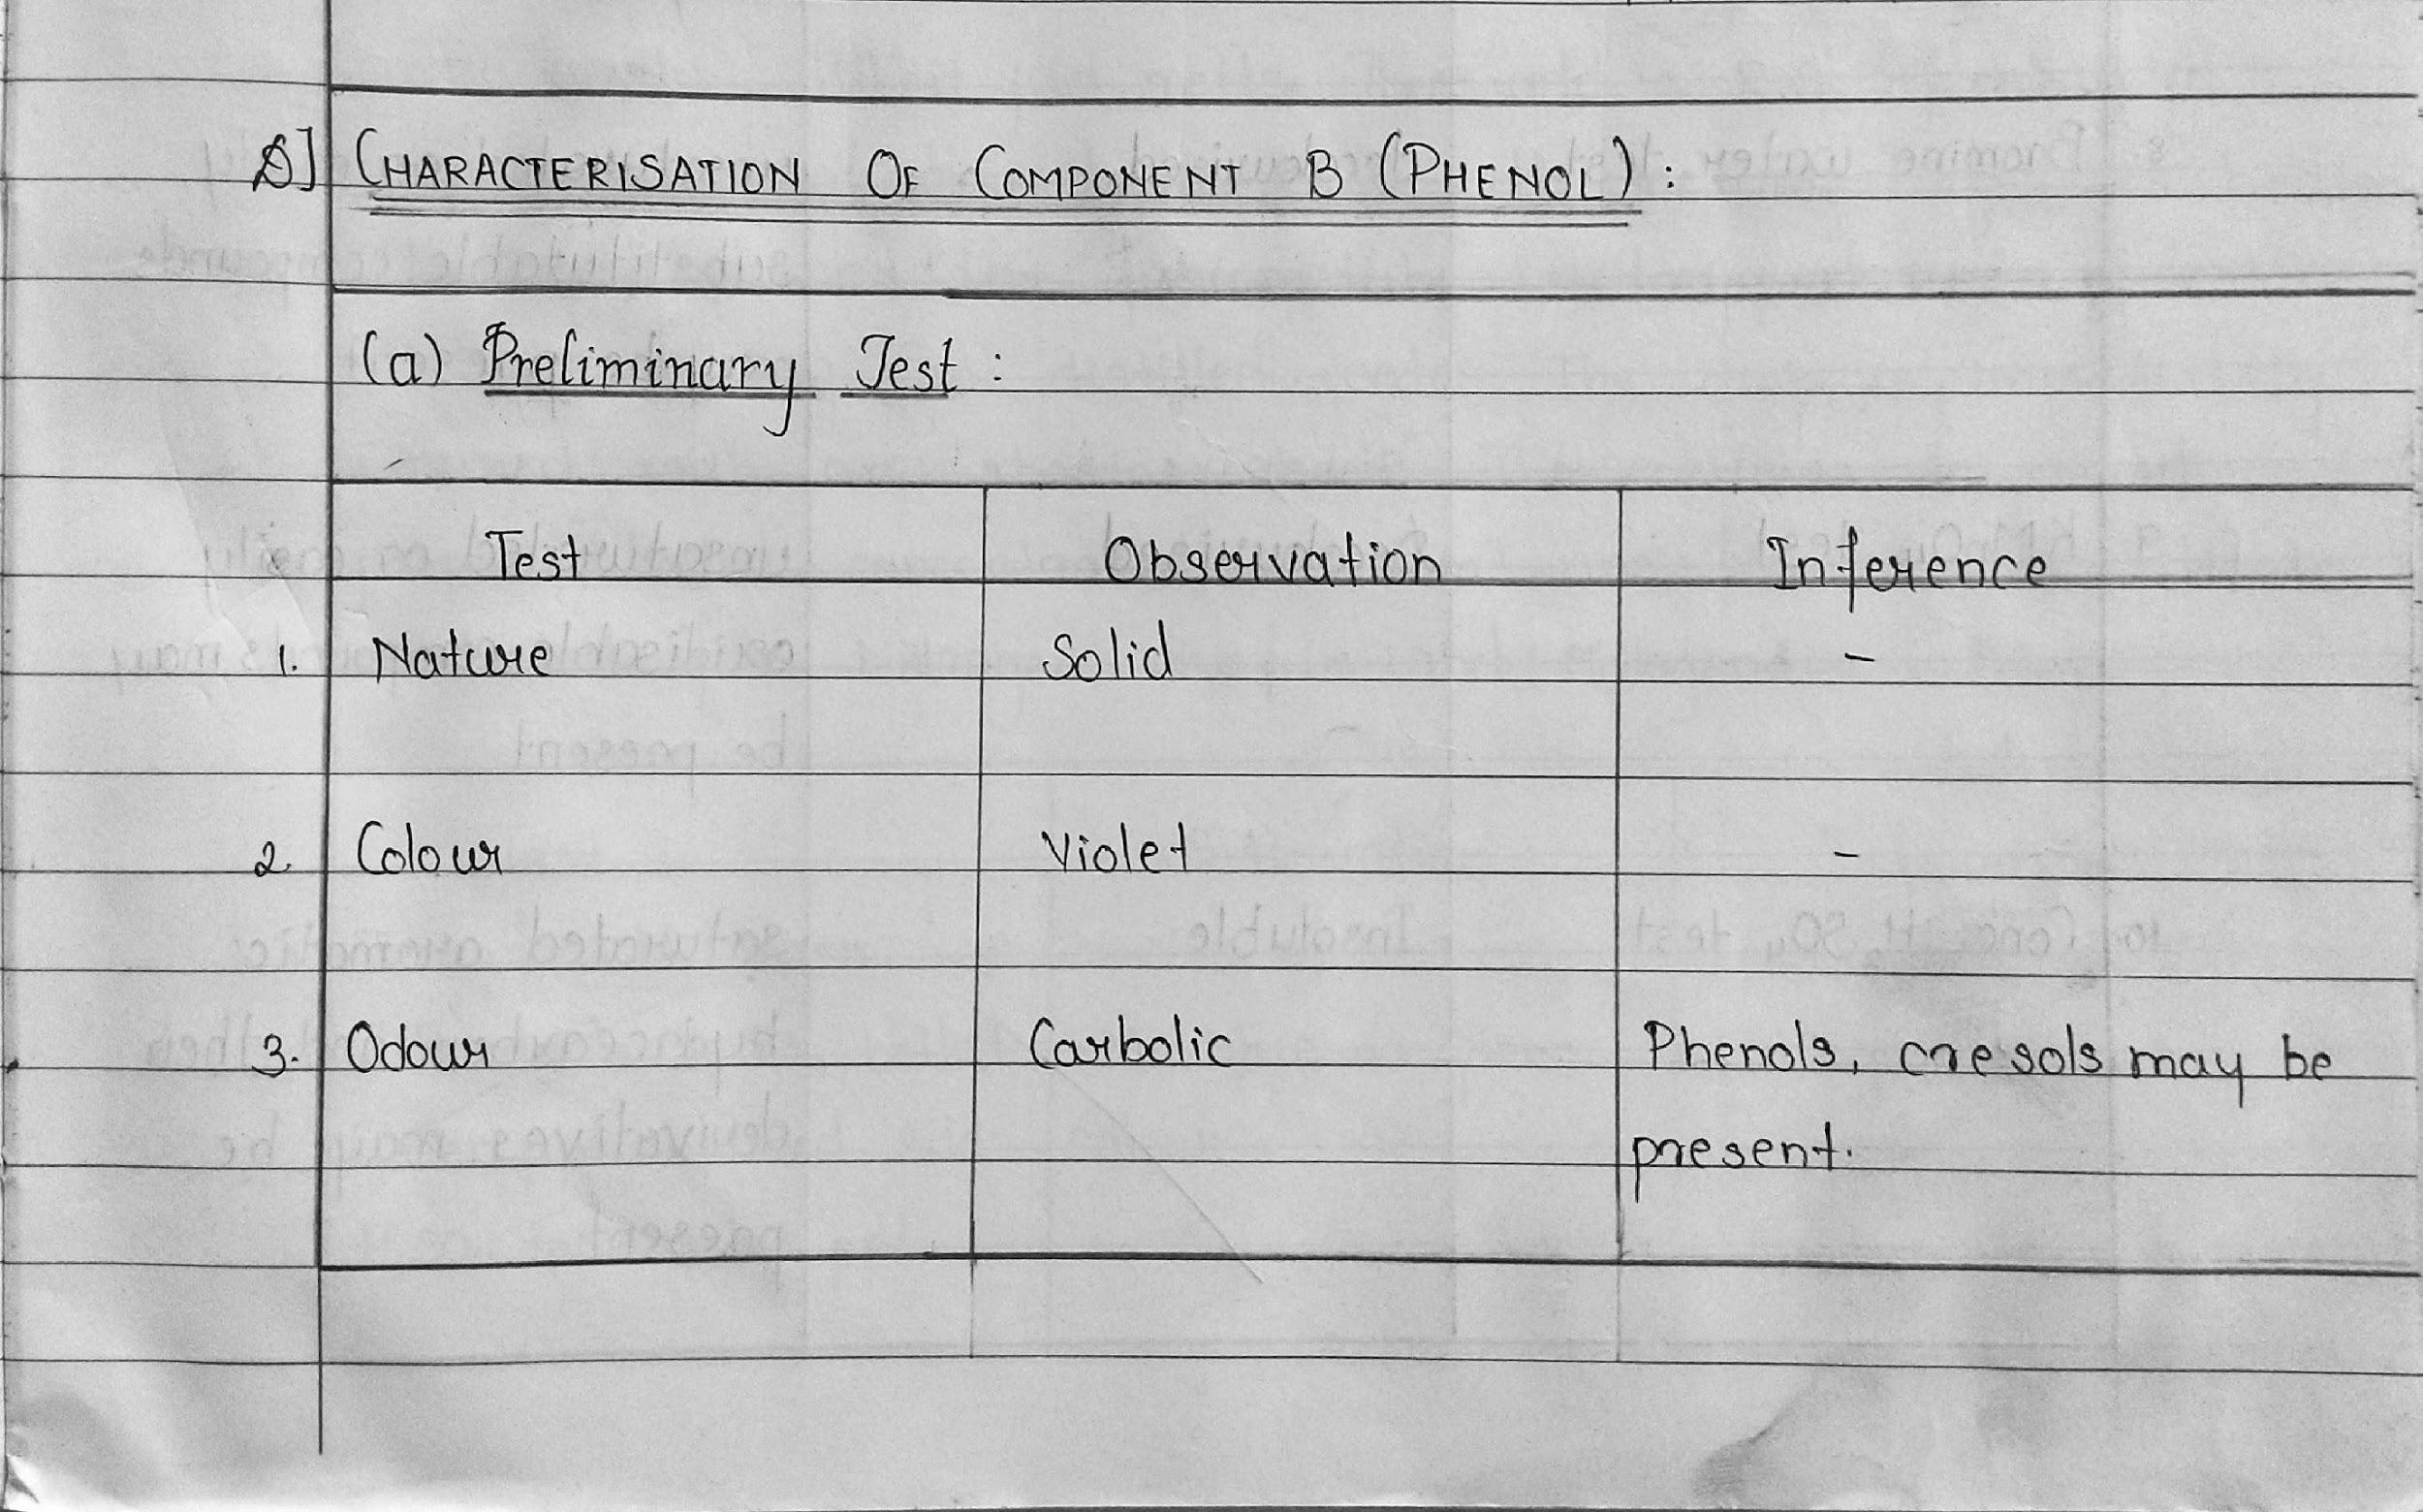 D] CHARACTERISATION OF COMPONENT B (PHENOL) :
(a) Preliminary Test :
Test Observation Inference
1. Nature Solid -
2. Colour Violet -
3. Odour Carbolic Phenols, cresols may be
present.